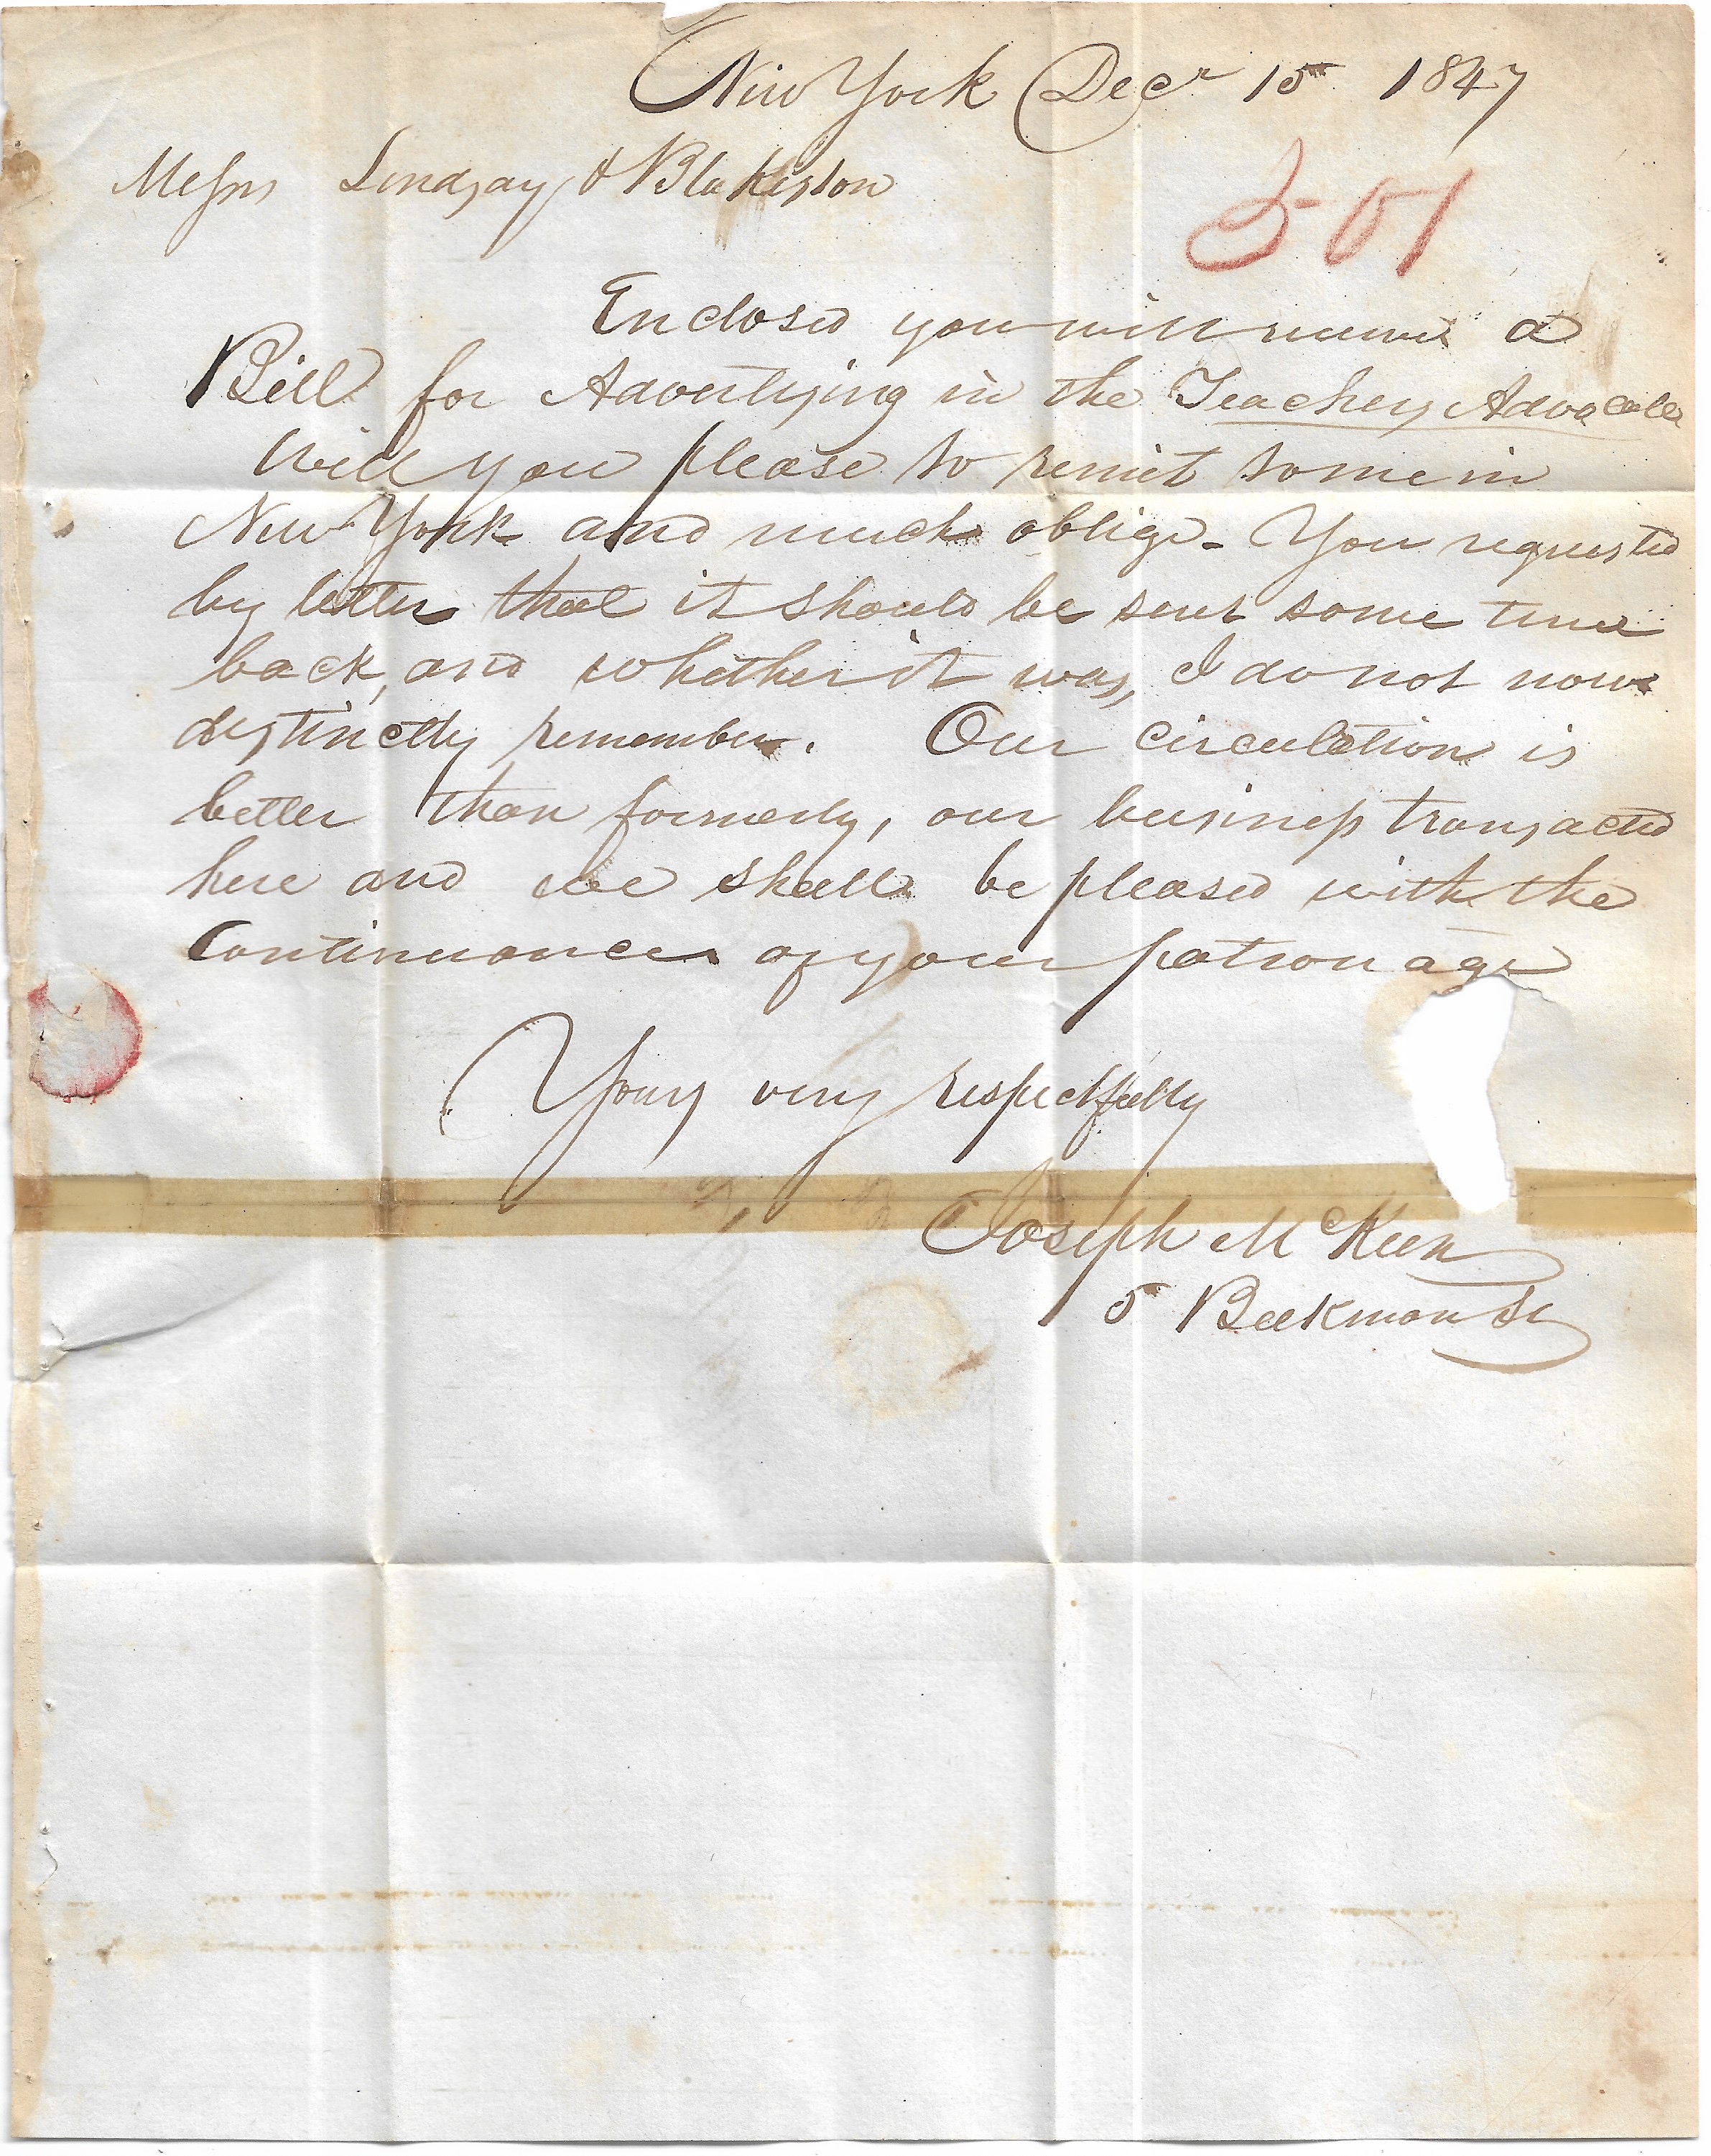 New York Decr 15 1847
Messrs Lindsay & Blakiston
501
Enclosed you will receive a
Bill for Advertising in the Teachers Advocate
Will you please to remit some in
New York and much oblige - You requested
by letter that it should be sent some time
back, and whether it was, I do not now
distinctly remember. Our circulation is
better than formerly, our business transacted
here and we shall be pleased with the
Continuance of your patronage
Yours very respectfully
Joseph McKeen
5 Beekman St